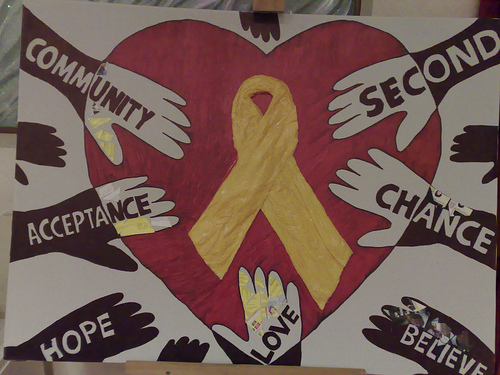 COMMUNITY
SECOND
ACCEPTANCE
CHANCE
HOPE
LOVE
BELIEVE